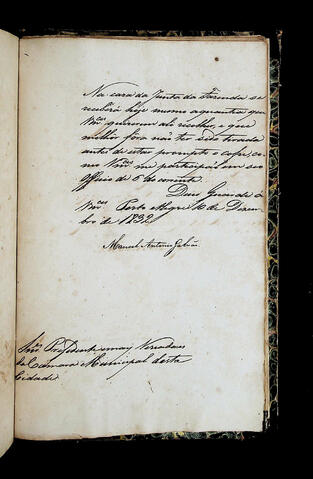 Na caza da Junta da Fazenda se
receberá hoje mesmo a quantia que
Vm.ces querem ali recolher, e que
melhor fora não ter sido tirada
antes de estar prompto o cofre, co-
mo Vm.ces me participão em seo
Officio de 6 do corrente.
Deus Guarde a
Vm.ces Porto Alegre 10 de Dezem-
bro de 1832
Manoel Antonio Galvão
Snr.es Presidente e mais Vereadores
da Camara Municipal desta
Cidade.